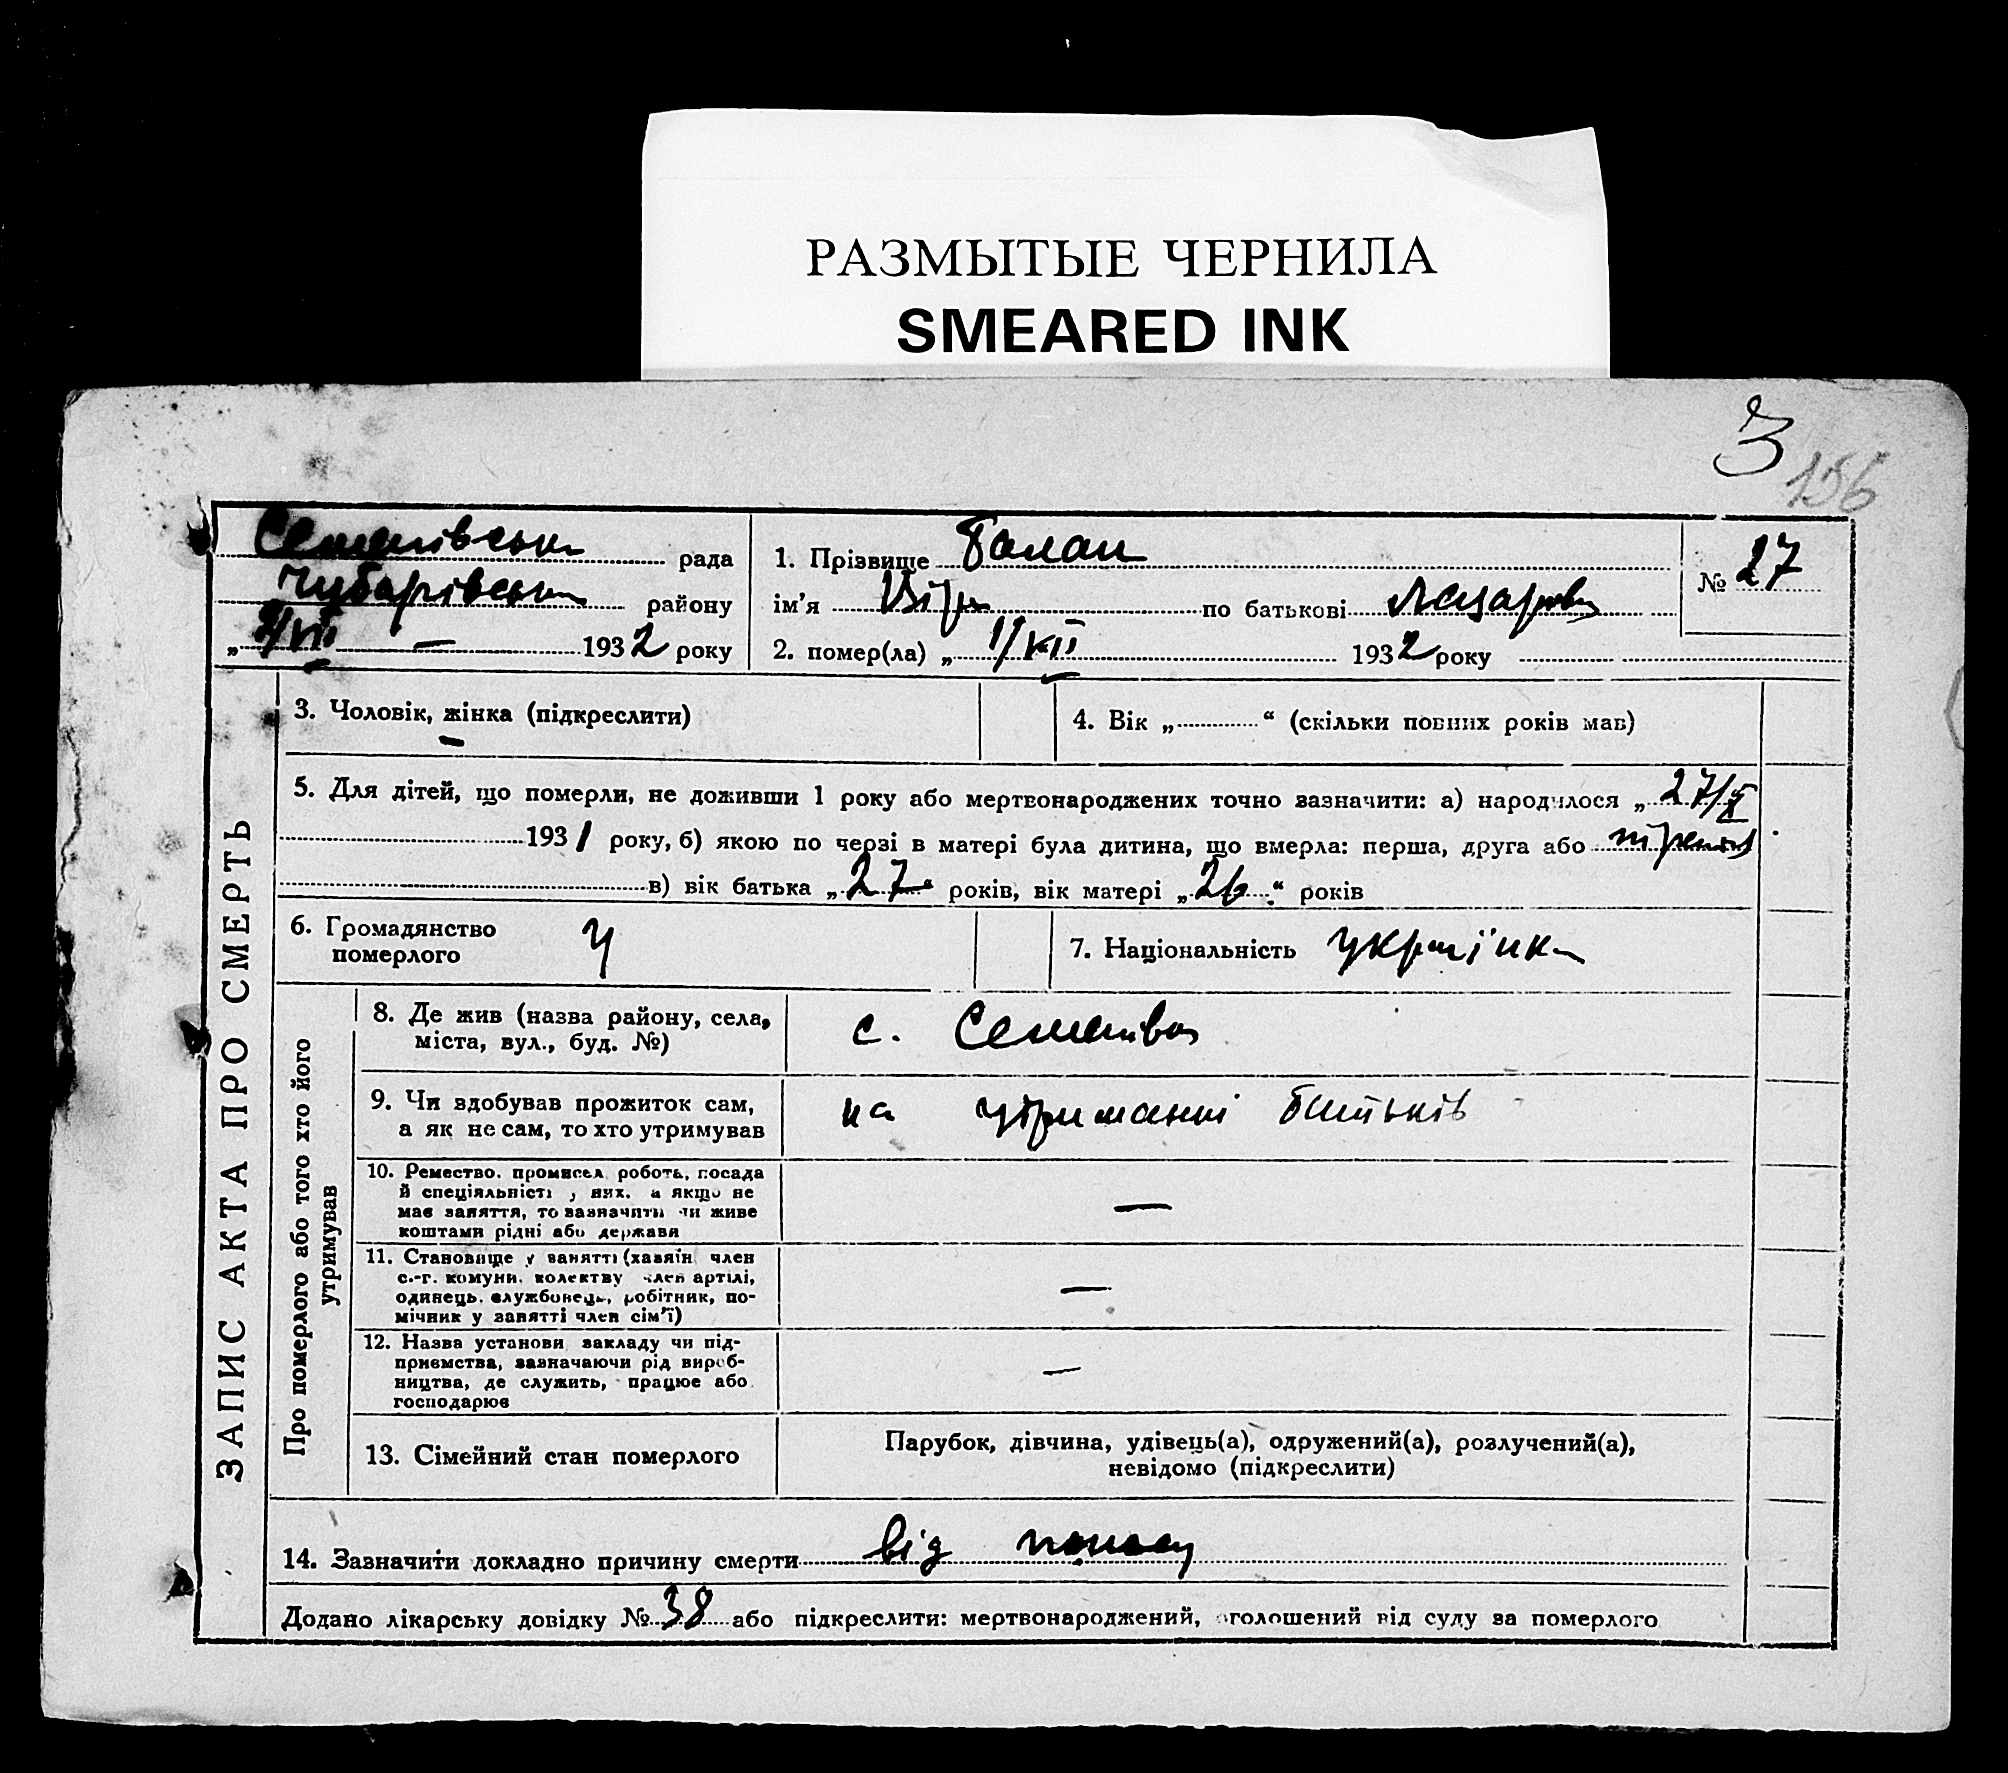 РАЗМЫТЫЕ ЧЕРНИЛА
SMEARED INK
З
156
Семенівська рада
Чубарівськ району
„ 2/VII — 1932 року
1. Прізвище Балан
ім'я Віра по батькові Лазаровна
№ 27
2. помер(ла) „ 1/VII 1932 року
ЗАПИС АКТА ПРО СМЕРТЬ
3. Чоловік, жінка (підкреслити)
4. Вік „ “ (скільки повних років мав)
5. Для дітей, що померли, не доживши 1 року або мертвонароджених точно зазначити: а) народилося „ 27/X
1931 року, б) якою по черзі в матері була дитина, що вмерла: перша, друга або третя
в) вік батька „ 27 “ років, вік матері „ 26 “ років
6. Громадянство
померлого
У
7. Національність українка
Про померлого або того хто його
утримував
8. Де жив (назва району, села,
міста, вул., буд. №)
с. Семенівка
9. Чи здобував прожиток сам,
а як не сам, то хто утримував
на утриманні батьків
10. Ремество, промисел, робота, посада
й спеціяльність у них, а якщо не
має заняття, то зазначити чи живе
коштами рідні або держави
—
11. Становище у занятті (хазяїн, член
с.-г. комуни, колективу, член артілі,
одинець, службовець, робітник, по-
мічник у занятті член сім'ї)
—
12. Назва установи закладу чи під-
приємства, зазначаючи рід вироб-
ництва, де служить, працює або
господарює
—
13. Сімейний стан померлого
Парубок, дівчина, удівець(а), одружений(а), розлучений(а),
невідомо (підкреслити)
14. Зазначити докладно причину смерти від поносу
Додано лікарську довідку № 38 або підкреслити: мертвонароджений, оголошений від суду за померлого